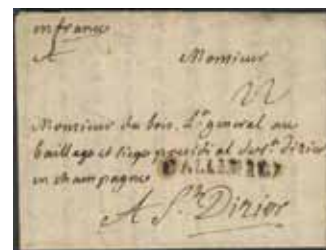 en france
A Monsieur
22
Monsieur du bois, L.t general au
baillage et siege presidial de St. Dizier
en champagne
A St. Dizier